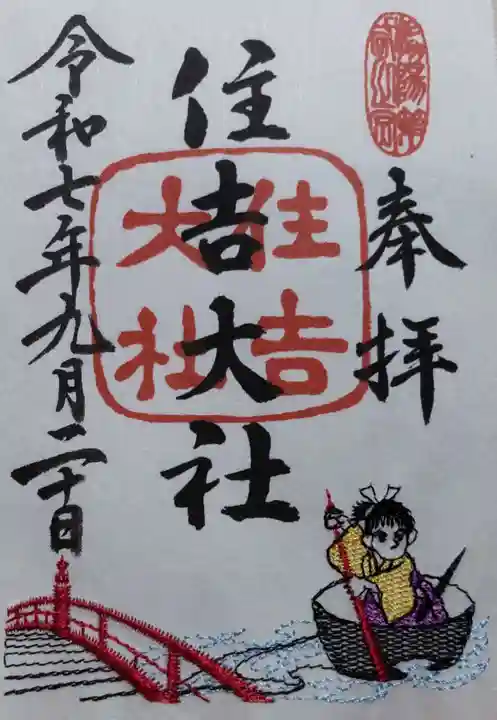 奉拝
住吉大社
住吉大社
令和七年九月二十日